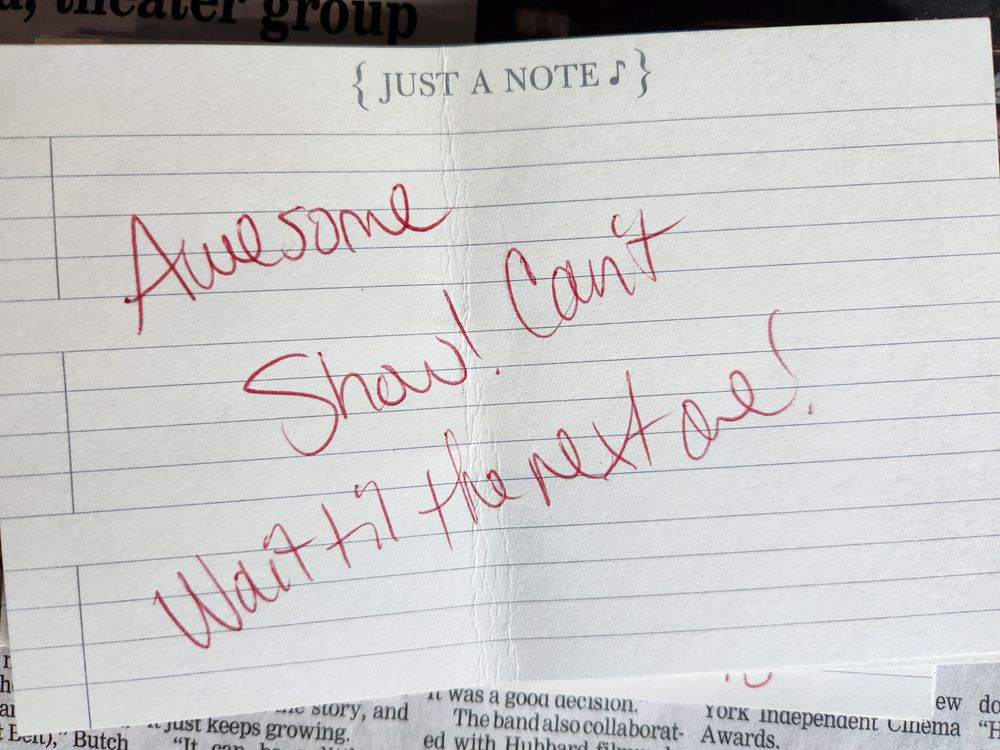 theater group
{ JUST A NOTE ♪ }
Awesome
Show! Can't
Wait til the next one!
Belt)," Butch
story, and
just keeps growing.
"It can be
It was a good decision.
The band also collaborat-
ed with Hubbard
York Independent Cinema
Awards.